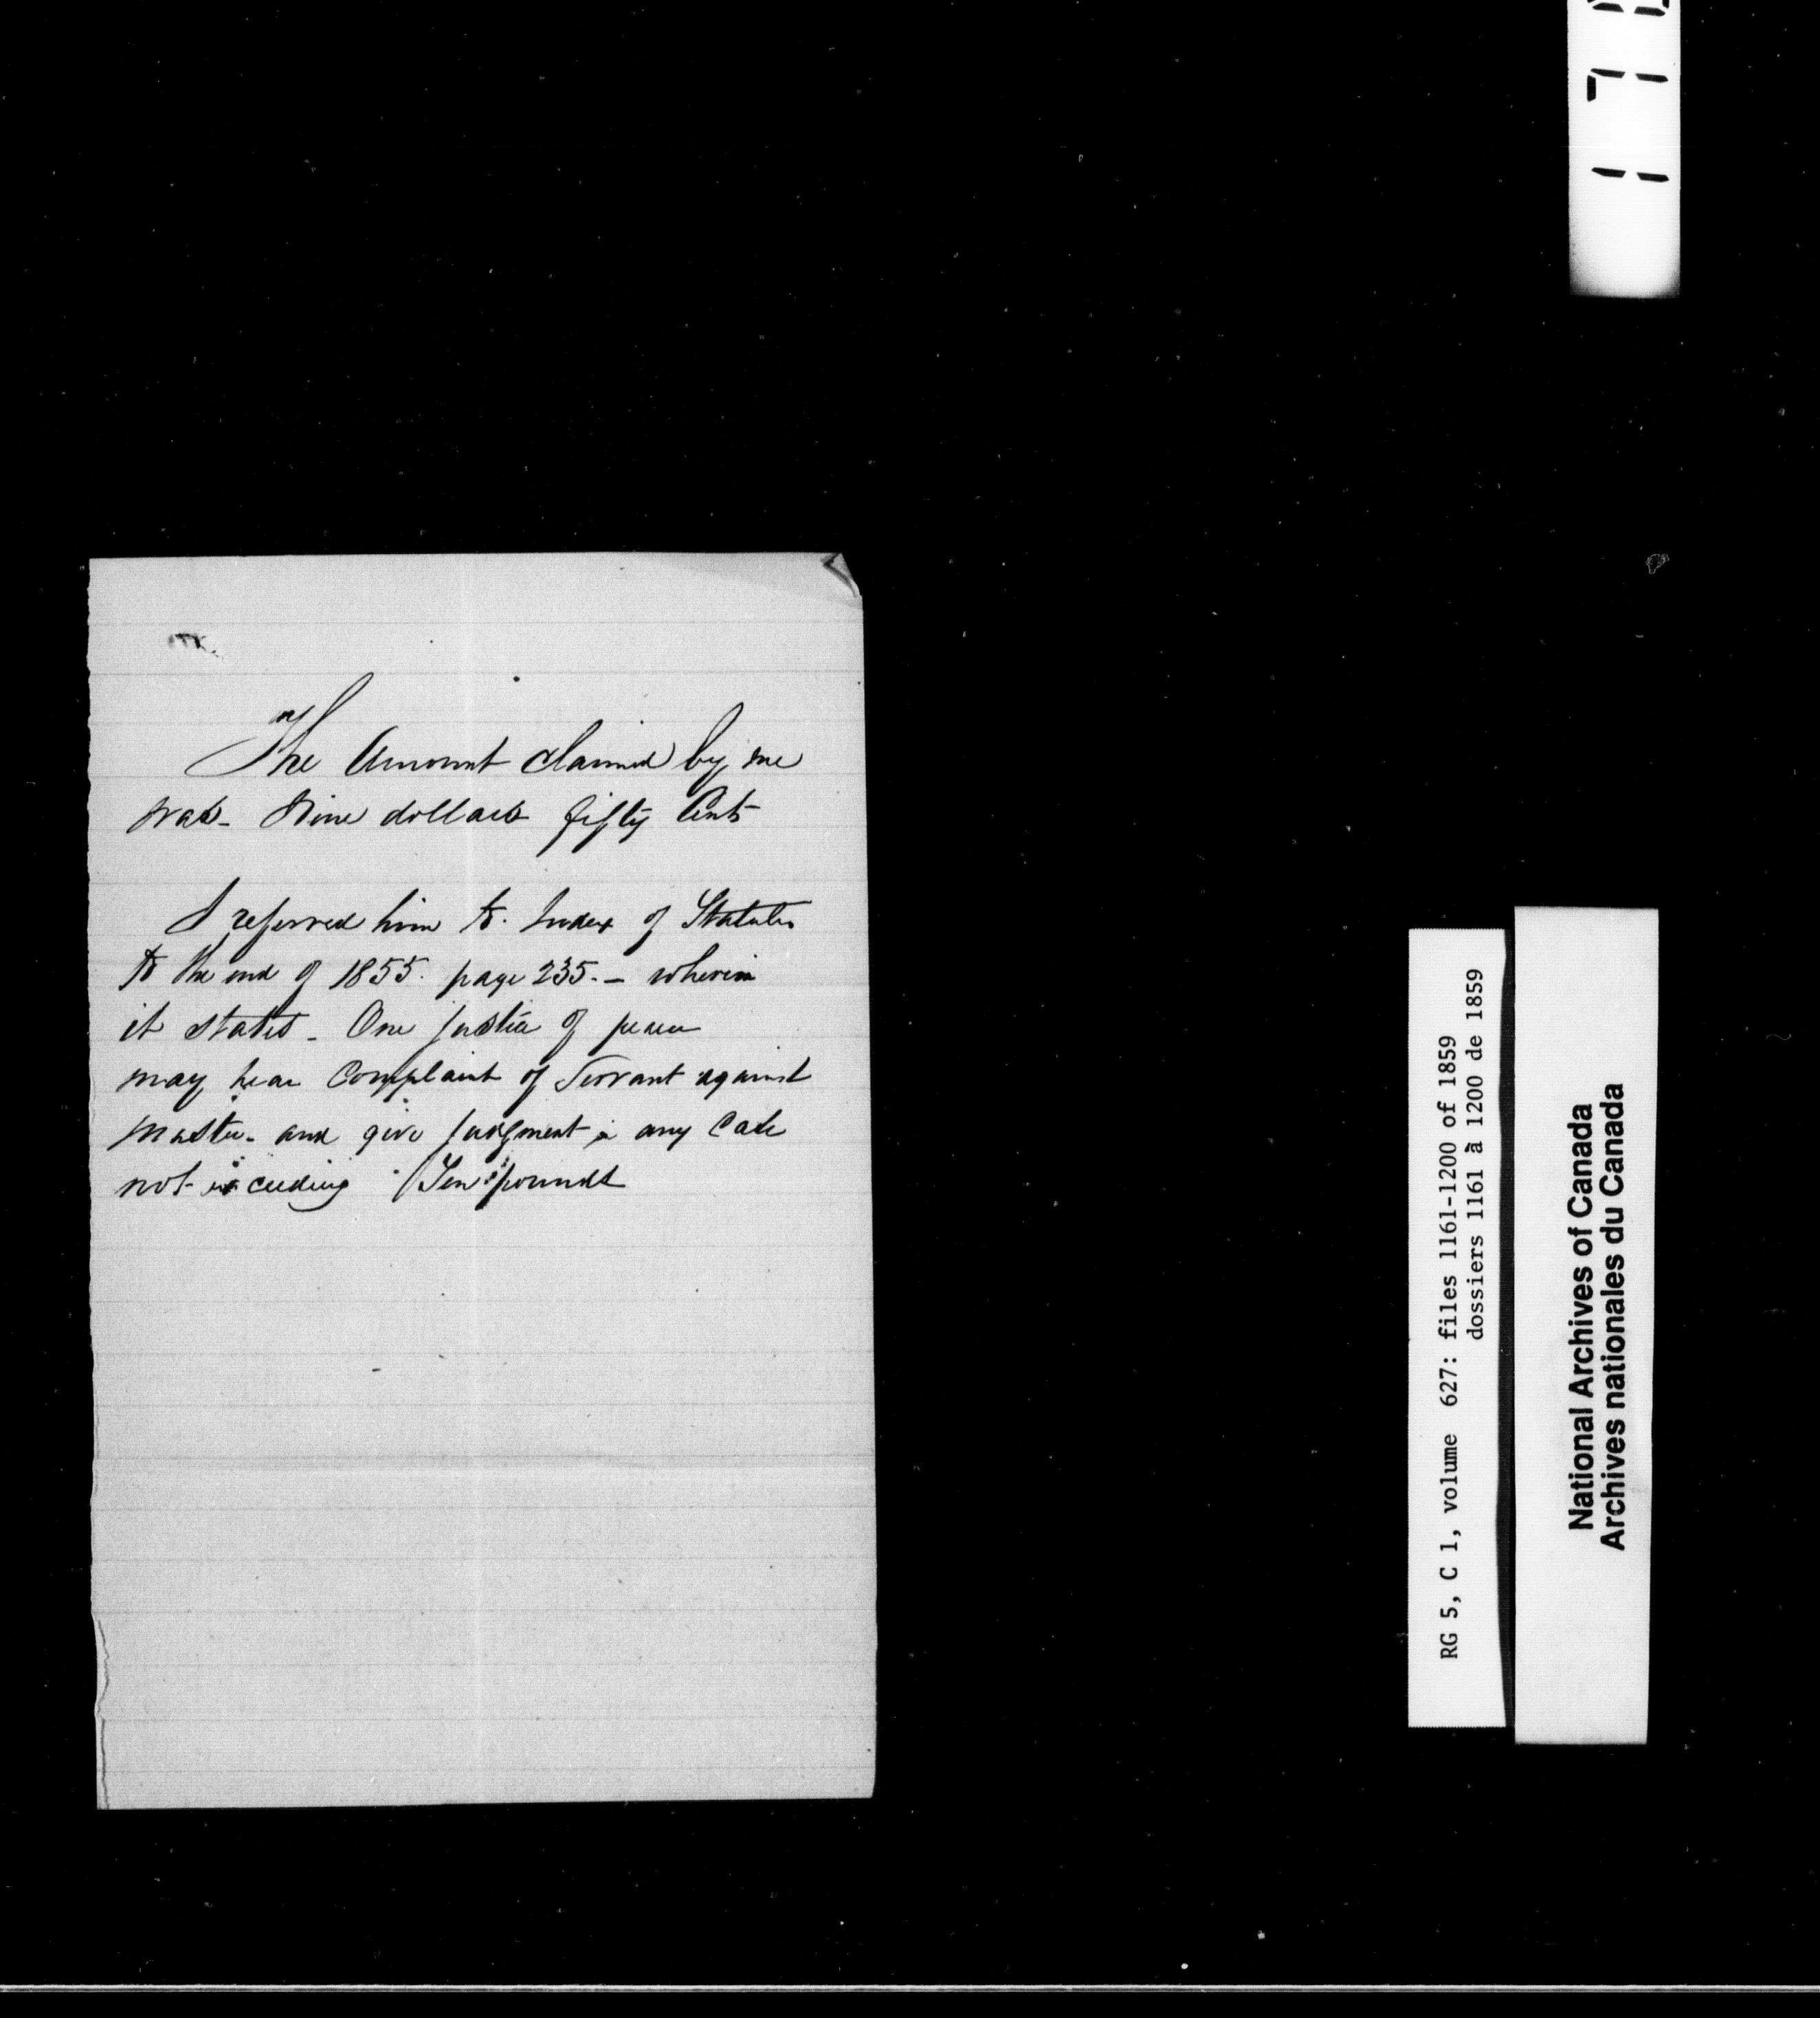 The Amount claimed by me
was - Nine dollars fifty Cents
I referred him to Index of Statutes
to the end of 1855. page 235. - wherein
it states - One Justice of peace
may hear Complaint of Servant against
master - and give judgment in any Case
not exceeding Ten pounds
RG 5, C 1, volume 627: files 1161-1200 of 1859
dossiers 1161 à 1200 de 1859
National Archives of Canada
Archives nationales du Canada